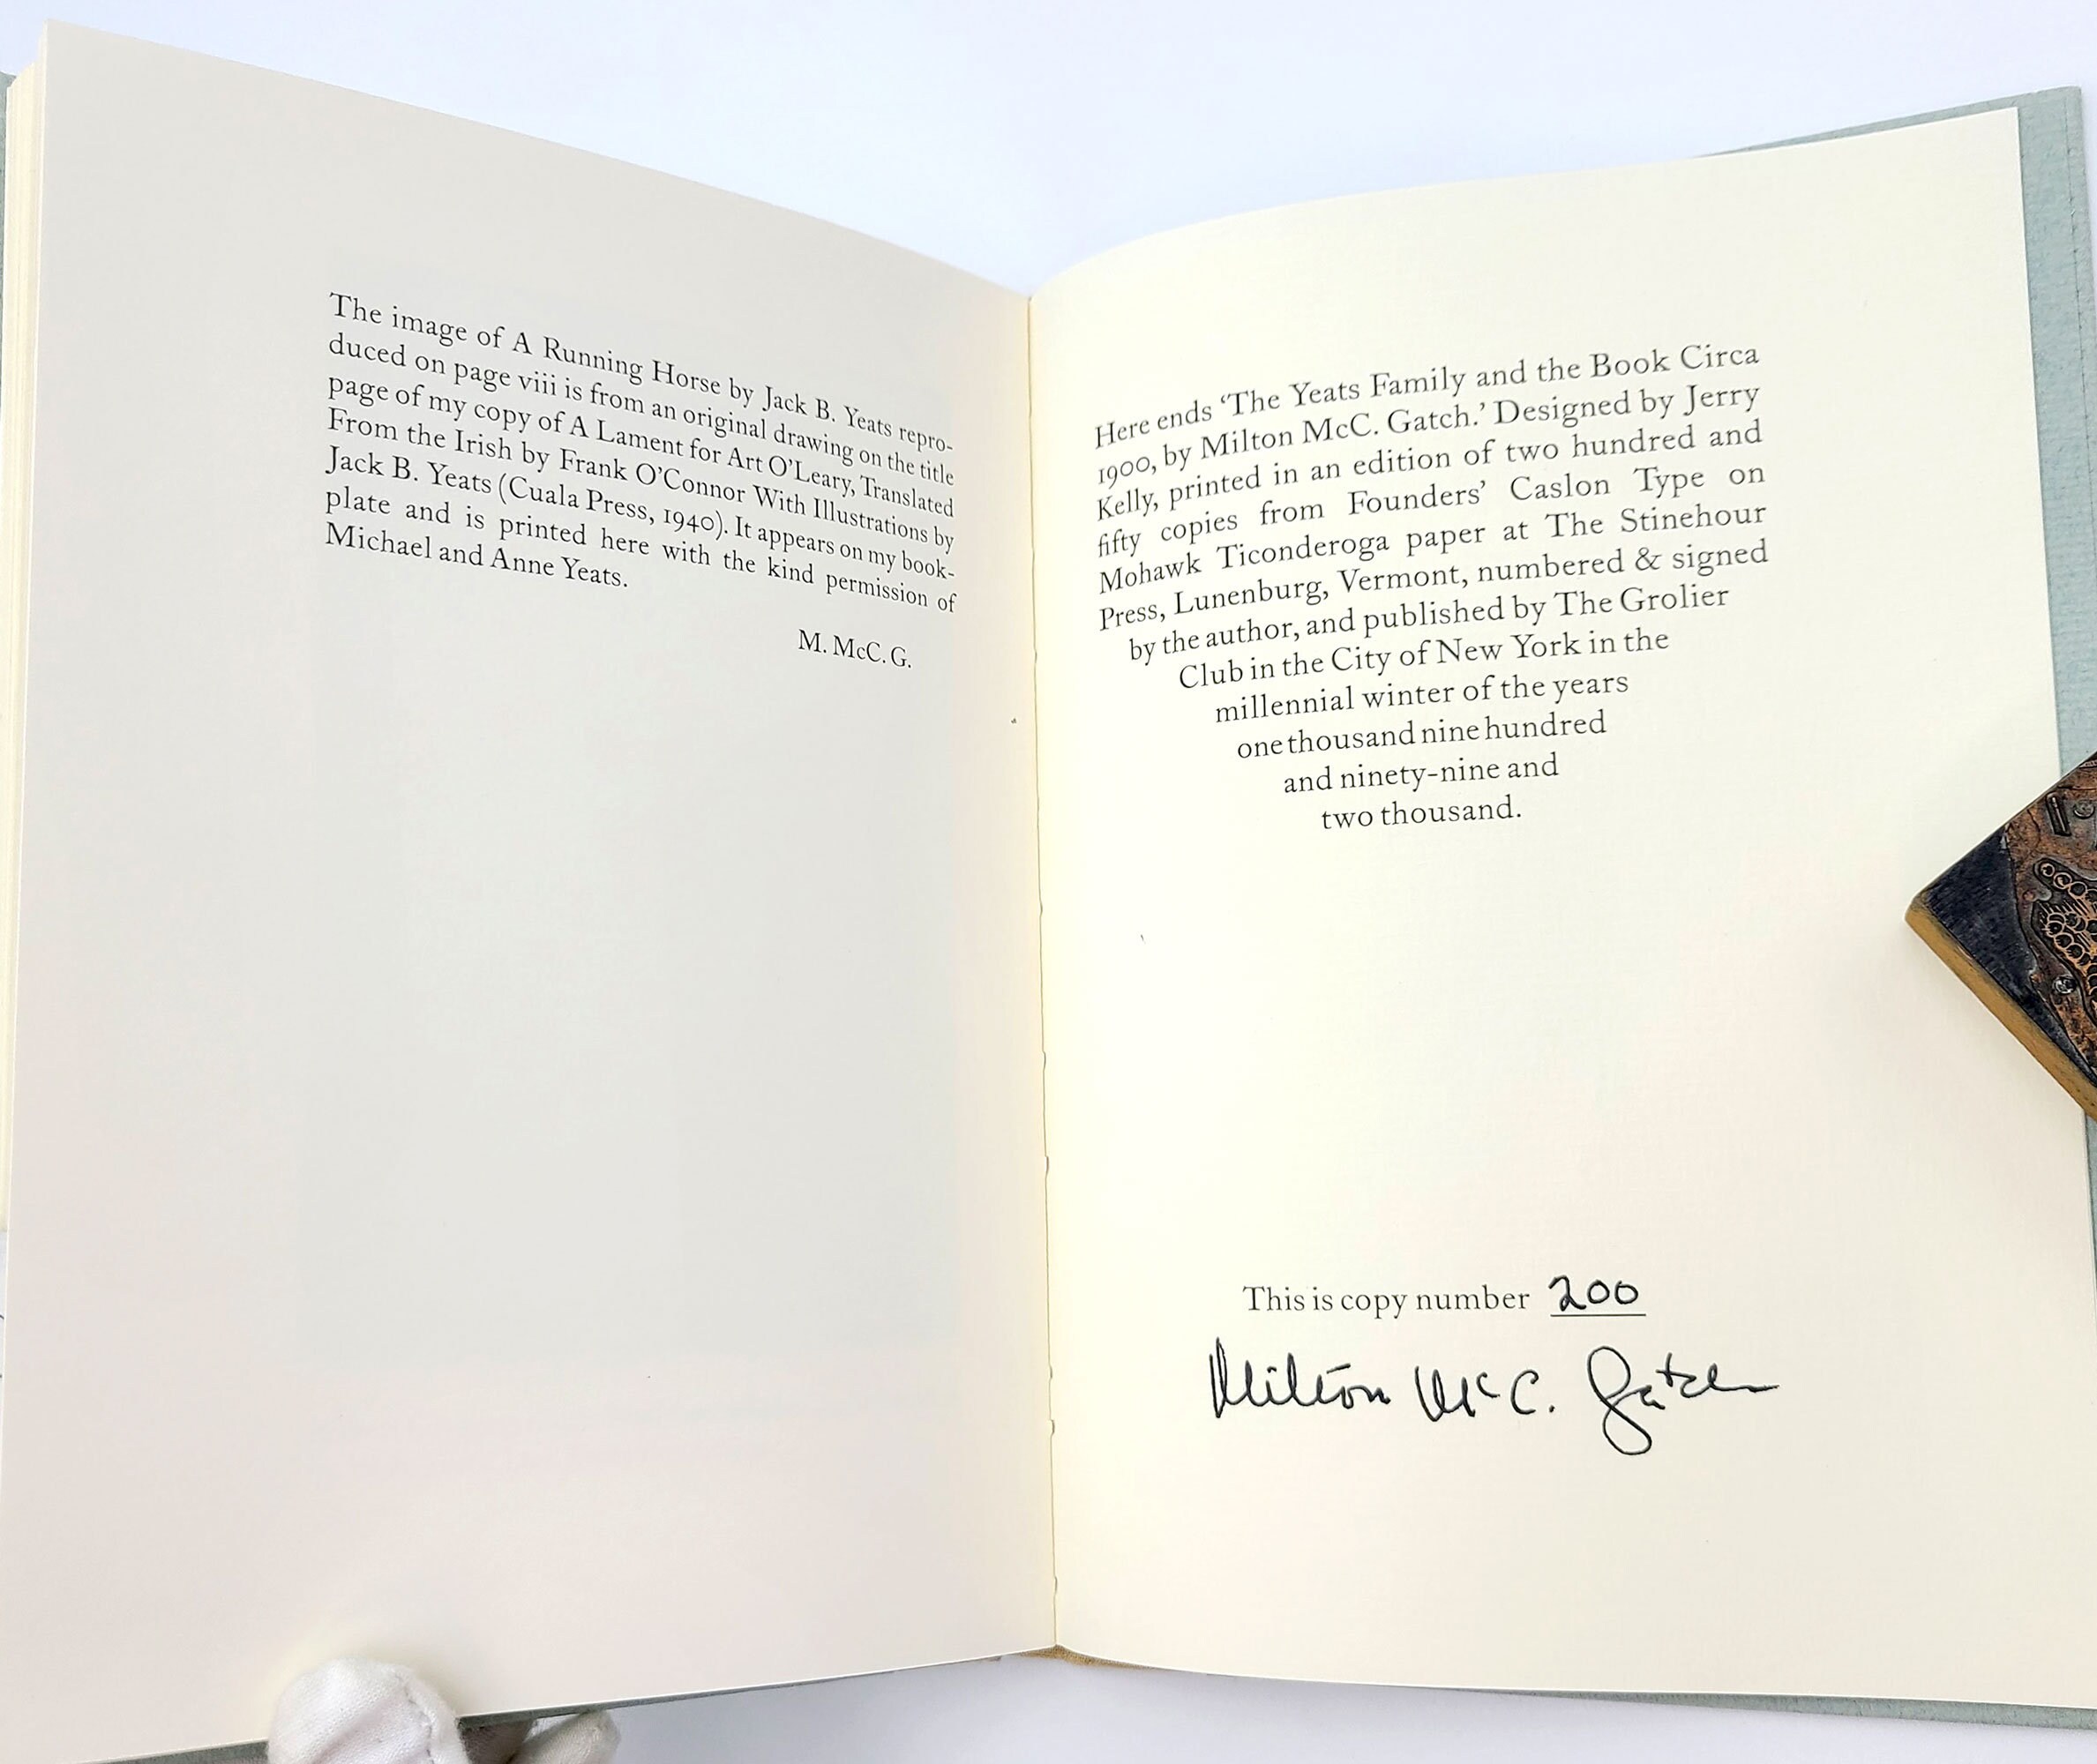 The image of A Running Horse by Jack B. Yeats repro-
duced on page viii is from an original drawing on the title
page of my copy of A Lament for Art O’Leary, Translated
From the Irish by Frank O’Connor With Illustrations by
Jack B. Yeats (Cuala Press, 1940). It appears on my book-
plate and is printed here with the kind permission of
Michael and Anne Yeats.
M. McC. G.
Here ends ‘The Yeats Family and the Book Circa
1900, by Milton McC. Gatch.’ Designed by Jerry
Kelly, printed in an edition of two hundred and
fifty copies from Founders’ Caslon Type on
Mohawk Ticonderoga paper at The Stinehour
Press, Lunenburg, Vermont, numbered & signed
by the author, and published by The Grolier
Club in the City of New York in the
millennial winter of the years
one thousand nine hundred
and ninety-nine and
two thousand.
This is copy number 200
Milton McC. Gatch